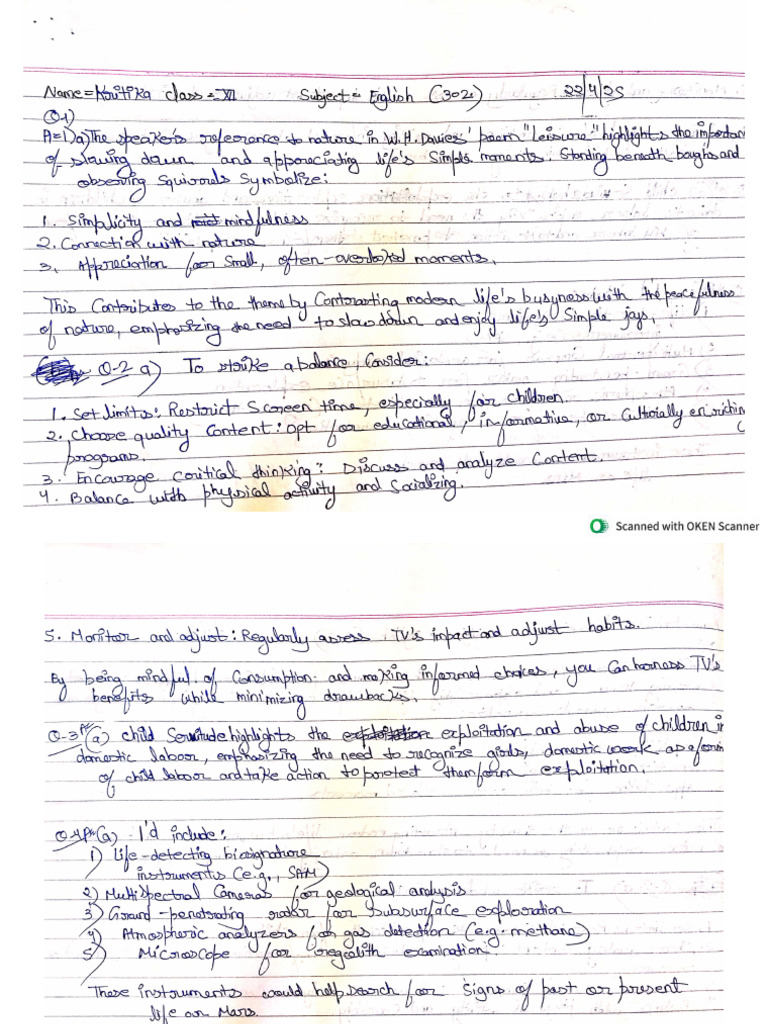 Name = Kritika class = XII Subject = English (302) 22/4/25
Q-1)
A=1) a) The speaker's reference to nature in W.H. Davies' poem "Leisure" highlights the importan
of slowing down and appreciating life's simple moments. Standing beneath boughs and
observing squirrels symbolize:
1. Simplicity and mindfulness
2. Connection with nature
3. Appreciation for small, often-overlooked moments.
This contributes to the theme by contrasting modern life's busyness with the peacefulness
of nature, emphasizing the need to slow down and enjoy life's simple joys.
Q-2 a) To strike a balance, consider:
1. Set limits: Restrict screen time, especially for children.
2. Choose quality content: opt for educational, informative, or culturally enriching
programs.
3. Encourage critical thinking: Discuss and analyze content.
4. Balance with physical activity and socializing.
Scanned with OKEN Scanner
5. Monitor and adjust: Regularly assess TV's impact and adjust habits.
By being mindful of consumption and making informed choices, you can harness TV's
benefits while minimizing drawbacks.
Q-3 (a) child Servitude highlights the exploitation and abuse of children in
domestic labour, emphasizing the need to recognize girls, domestic work as a form
of child labour and take action to protect them form exploitation.
Q-4 (a) I'd include:
1) Life-detecting biosignature
instruments (e.g., SAM)
2) Multispectral Cameras for geological analysis
3) Ground-penetrating radar for subsurface exploration
4) Atmospheric analyzers for gas detection (e.g. methane)
5) Microscope for regolith examination.
These instruments would help search for signs of past or present
life on Mars.